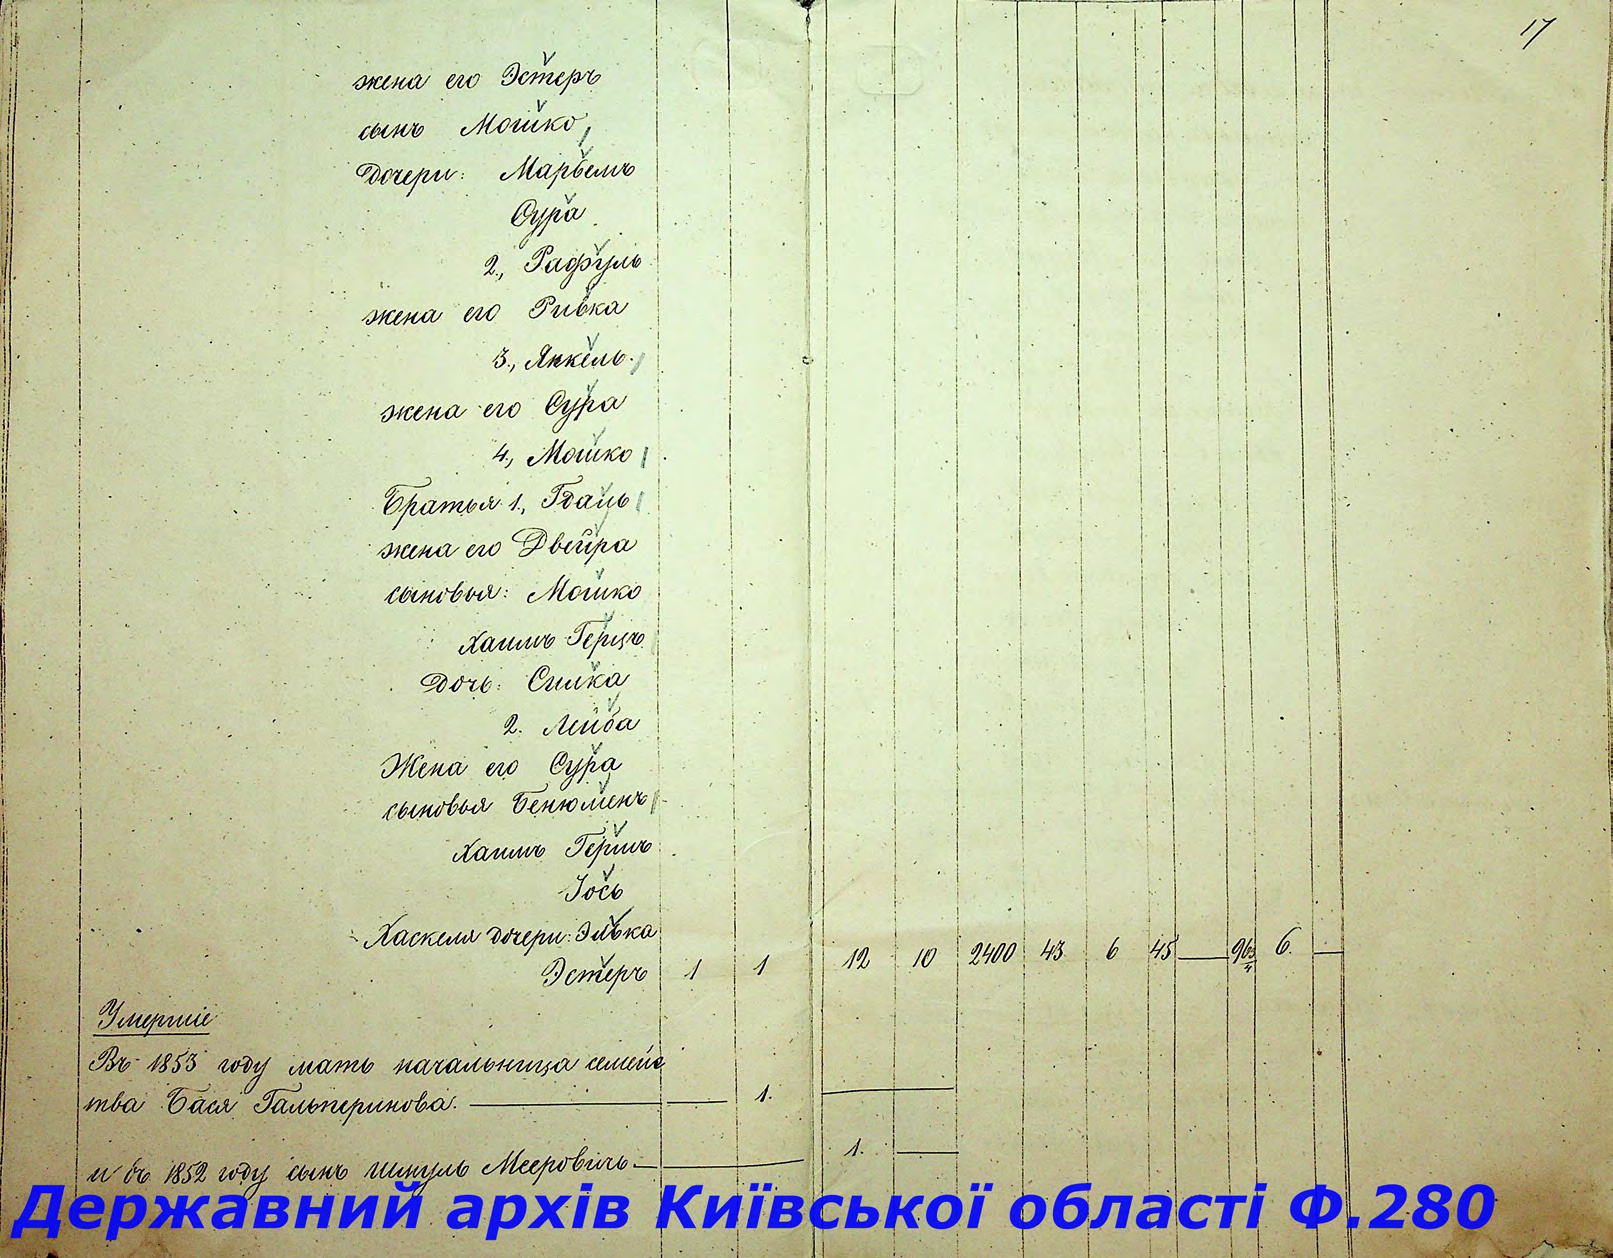 17
жена его Эстеръ
сынъ Мошко
Дочери: Марьемъ
Сура
2., Рафуль
жена его Ривка
3., Янкель
жена его Сура
4., Мошко
Братья 1., Гдаль
жена его Двейра
сыновья: Мошко
Хаимъ Герцъ
Дочь: Силка
2. Лейба
Жена его Сура
сыновья Бенюменъ
Хаимъ Гершъ
Іось
Хаскеля дочери: Элька
Эстеръ 1 1 12 10 2400 43 6 45 — 6. —
Умершіе
Въ 1853 году мать начальница семейс
тва Бася Гальперинова. — 1. —
и въ 1852 году сынъ Шмуль Мееровичъ — 1. —
Державний архів Київської області Ф.280